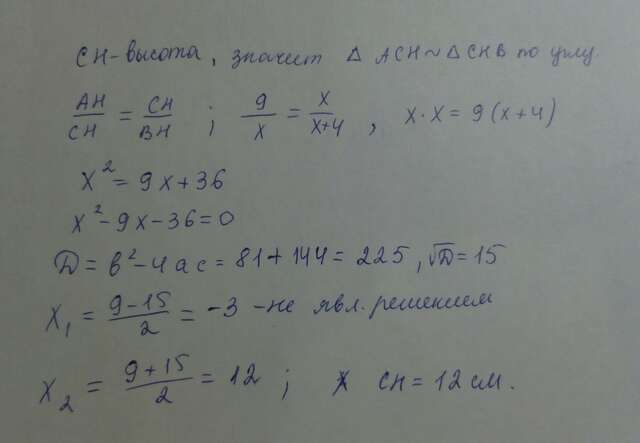 CH-высота, значит △ ACH ~ △ CHB по углу.
AH/CH = CH/BH ; 9/x = x/x+4 , x·x = 9(x+4)
x² = 9x+36
x²-9x-36=0
D = b²-4ac = 81+144 = 225, √D = 15
x₁ = 9-15/2 = -3 -не явл. решением
x₂ = 9+15/2 = 12 ; CH = 12 см.